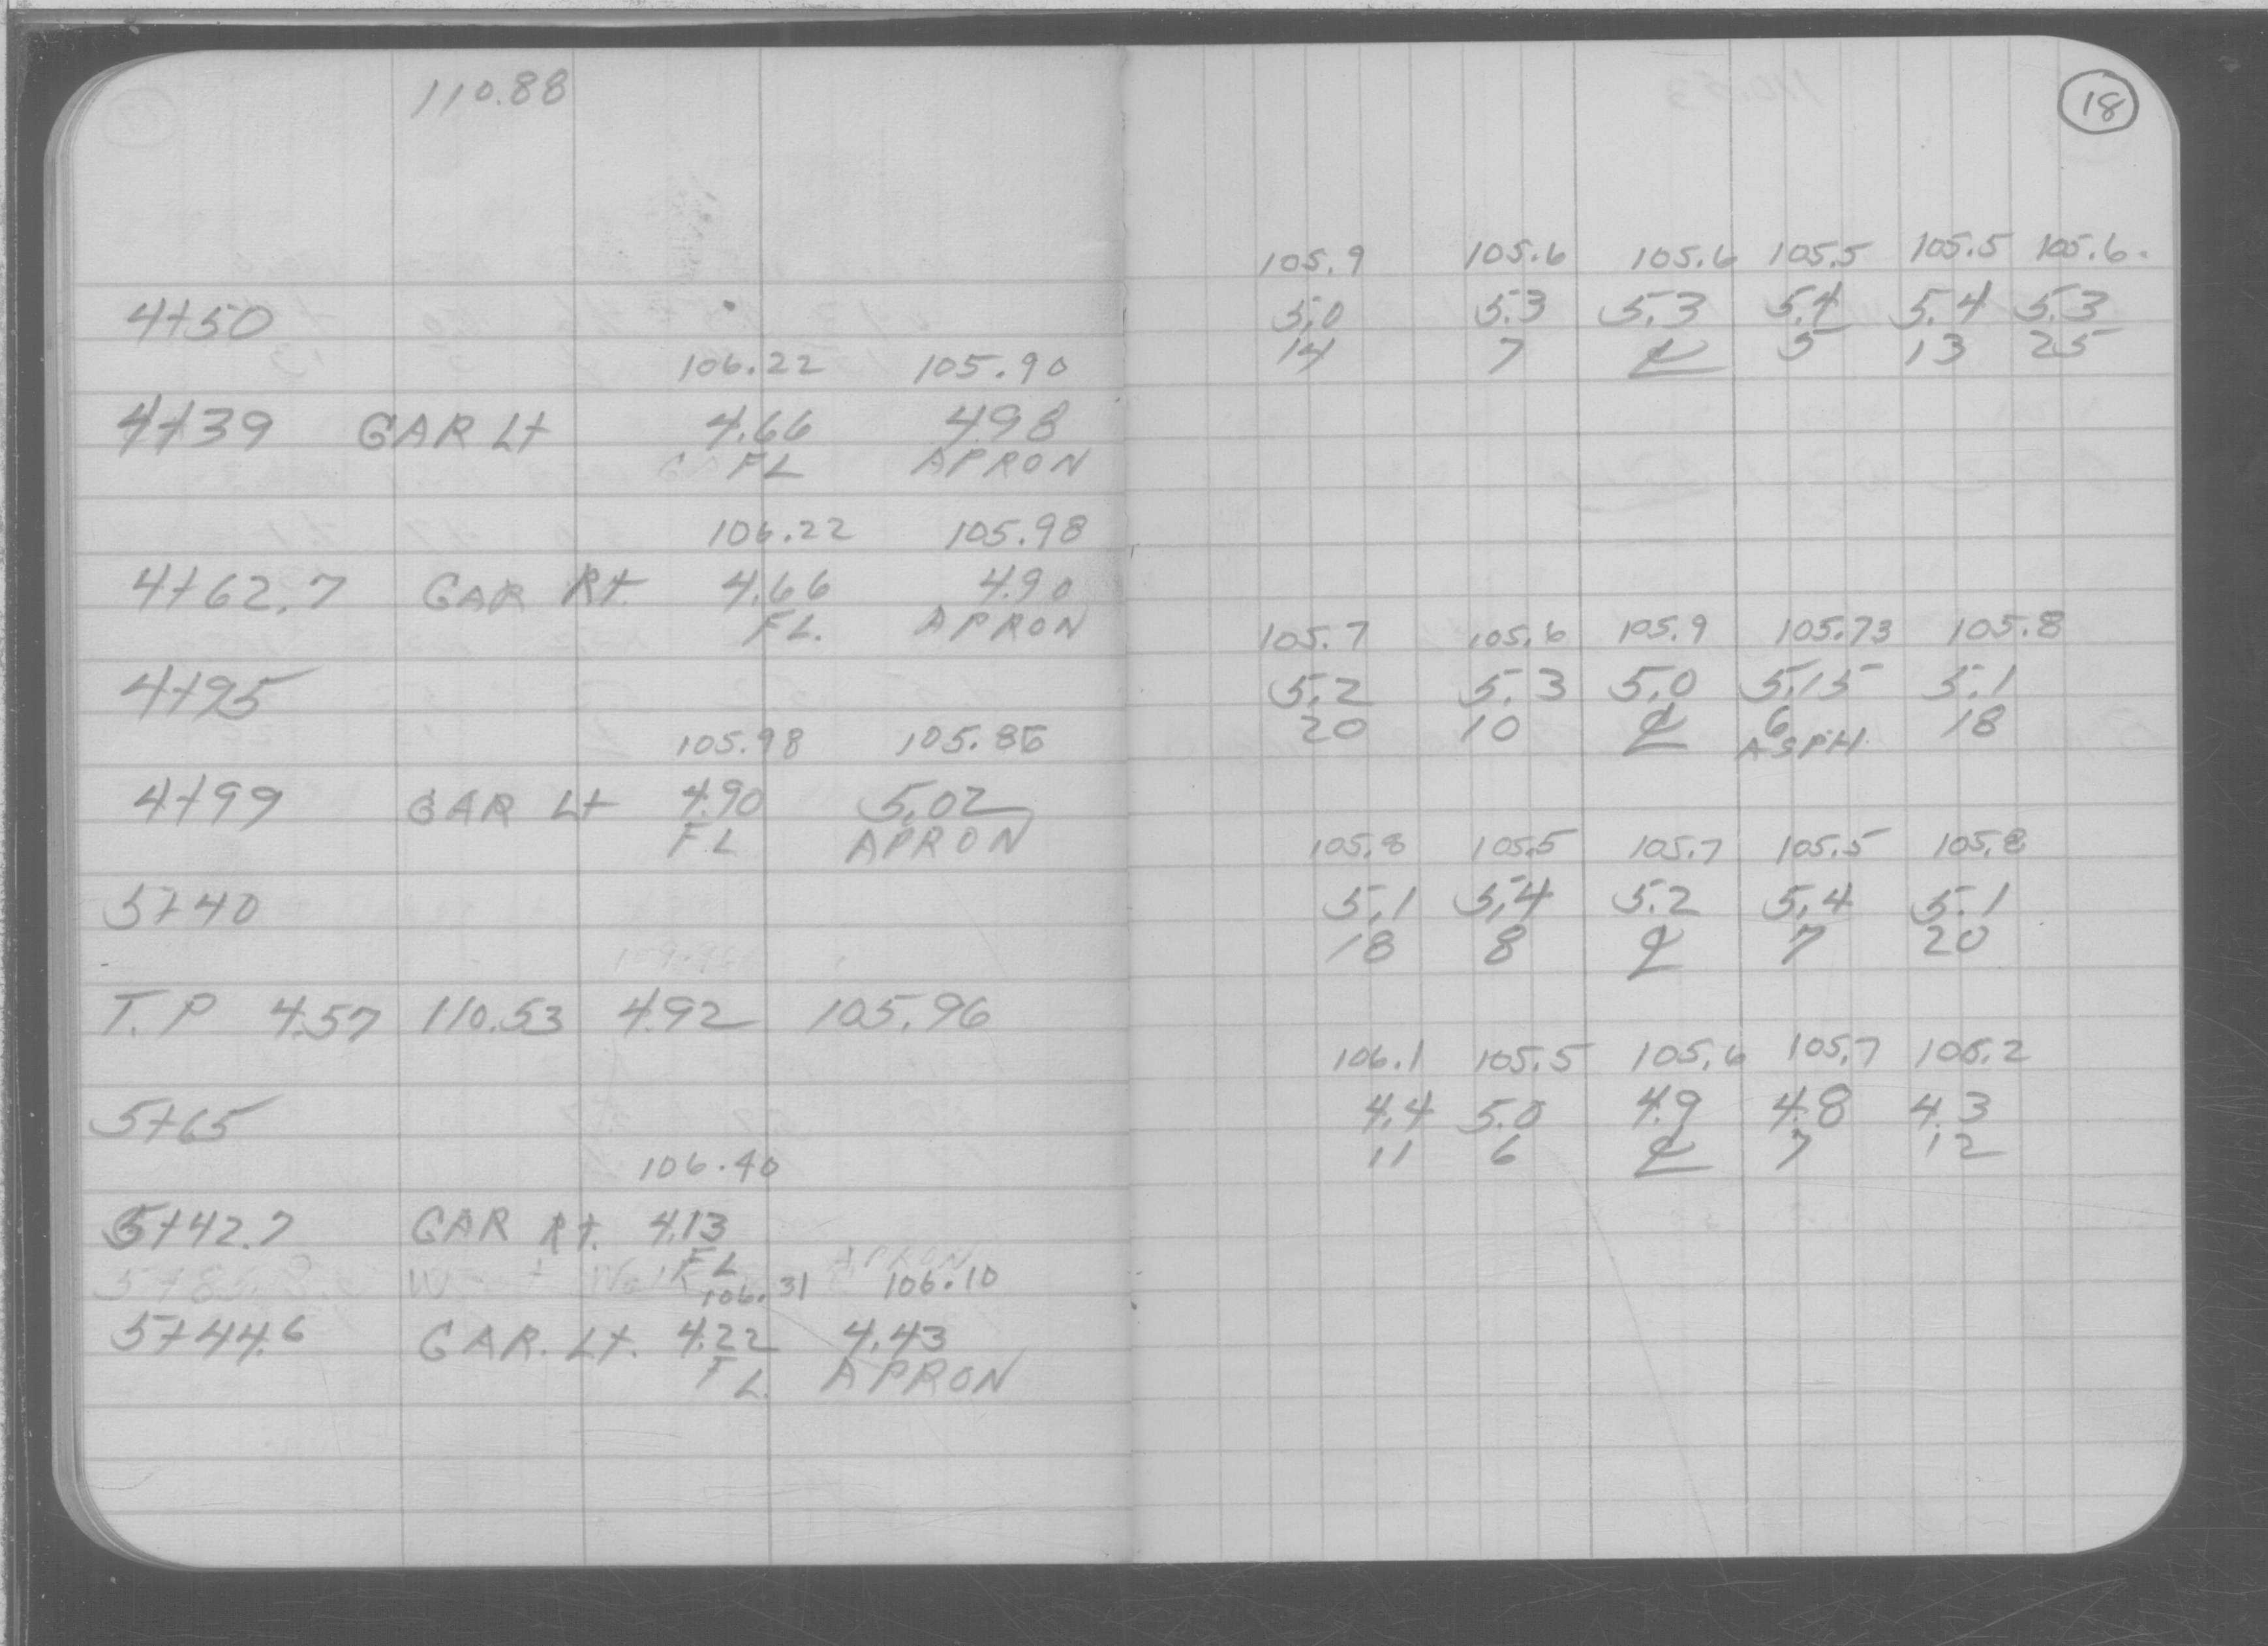 110.88
4+50
106.22 105.90
4+39 GAR Lt 4.66 4.98
FL APRON
106.22 105.98
4+62.7 GAR Rt. 4.66 4.90
FL. APRON
4+95
105.98 105.86
4+99 GAR Lt 4.90 5.02
FL APRON
5+40
T.P 4.57 110.53 4.92 105.96
5+65
106.40
5+42.7 GAR Rt. 4.13
FL APRON
106.31 106.10
5+44.6 GAR. Lt. 4.22 4.43
FL. APRON
18
105.9 105.6 105.6 105.5 105.5 105.6.
5.0 5.3 5.3 5.4 5.4 5.3
14 7 ℄ 5 13 25
105.7 105.6 105.9 105.73 105.8
5.2 5.3 5.0 5.15 5.1
20 10 ℄ 6 18
ASPH.
105.8 105.5 105.7 105.5 105.8
5.1 5.4 5.2 5.4 5.1
18 8 ℄ 7 20
106.1 105.5 105.6 105.7 106.2
4.4 5.0 4.9 4.8 4.3
11 6 ℄ 7 12